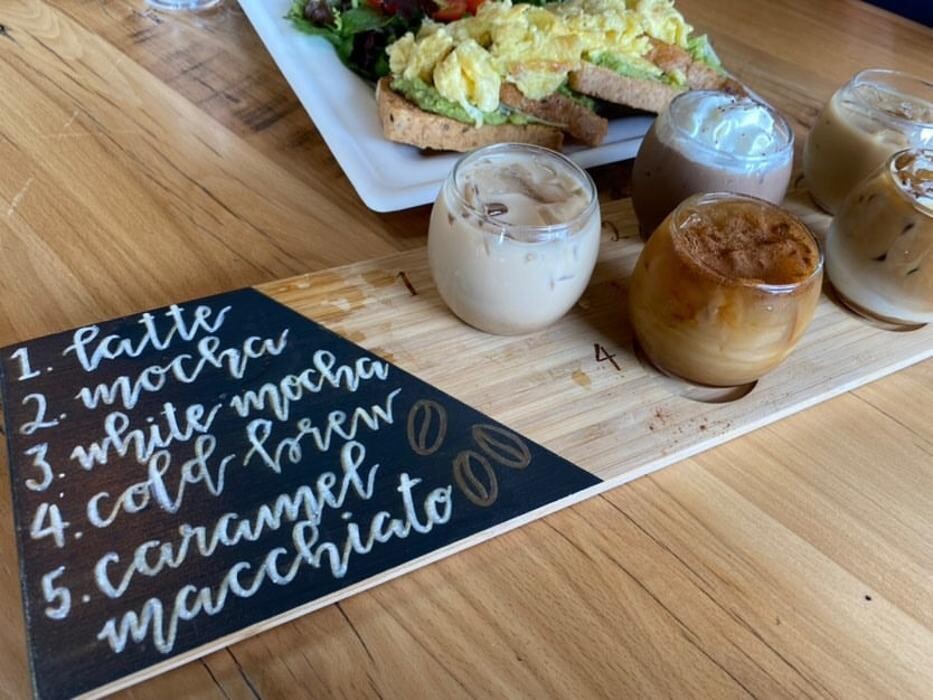 1. latte
2. mocha
3. white mocha
4. cold brew
5. caramel
macchiato
1
4